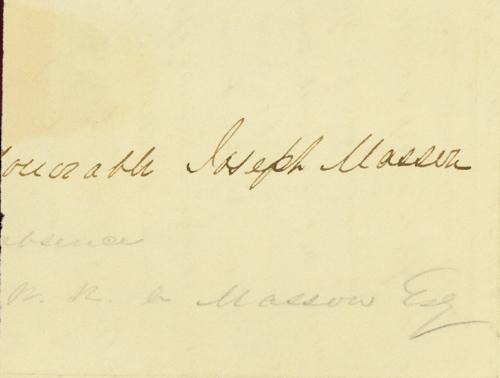 onorable Joseph Masson
absence
W. R. a Masson Esq